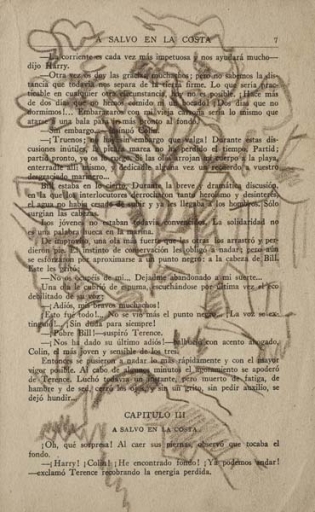 A SALVO EN LA COSTA 7
—La corriente es cada vez más impetuosa y nos ayudará mucho—
dijo Harry.
—Otra vez os doy las gracias, muchachos; pero no sabemos la dis-
tancia que todavía nos separa de la tierra firme. Lo que sería prac-
ticable en cualquier otra circunstancia, hoy no es posible. ¡Hace más
de dos días que no hemos comido ni un bocado! ¡Dos días que no
dormimos!... Embarazaros con mi vieja carcasa sería lo mismo que
ataros una bala para ir más pronto al fondo.
—Sin embargo... —opinó Colin.
—¡Truenos! ¡No hay sin embargo que valga! Durante estas dis-
cusiones inútiles, la pícara marea no ha perdido el tiempo. Partid;
partid pronto, yo os lo ruego. Si las olas arrojan mi cuerpo a la playa,
enterradle allí mismo, y dedicadle alguna vez un recuerdo a vuestro
desgraciado marinero...
Bill estaba en lo cierto. Durante la breve y dramática discusión,
en la que los interlocutores derrocharon tanto heroísmo y desinterés,
el agua no había cesado de subir y ya les llegaba a los hombros. Sólo
surgían las cabezas.
Los jóvenes no estaban todavía convencidos. La solidaridad no
es una palabra hueca en la marina.
De improviso, una ola más fuerte que las otras los arrastró y per-
dieron pie. Su instinto de conservación les obligó a nadar; pero aún
se esforzaron por aproximarse al punto negro: a la cabeza de Bill.
Éste les gritó:
—No os ocupéis de mí... Dejadme abandonado a mi suerte...
Una ola le cubrió de espuma, escuchándose por última vez el eco
debilitado de su voz:
—¡Adiós, mis bravos muchachos!
¡Esto fué todo!... No se vió más el punto negro... La voz se ex-
tinguió!... ¡Sin duda para siempre!
—¡Pobre Bill!—suspiró Terence.
—¡Nos ha dado su último adiós!—balbuceó con acento ahogado,
Colin, el más joven y sensible de los tres.
Entonces se pusieron a nadar lo más rápidamente y con el mayor
vigor posible. Al cabo de algunos minutos el agotamiento se apoderó
de Terence. Luchó todavía un instante, pero muerto de fatiga, de
hambre y de sed, cerró los ojos y sin un grito, sin pedir auxilio, se
dejó hundir...
CAPITULO III
A SALVO EN LA COSTA.
¡Oh, qué sorpresa! Al caer sus piernas, observó que tocaba el
fondo.
—¡Harry! ¡Colin! ¡He encontrado fondo! ¡Ya podemos andar!
—exclamó Terence recobrando la energía perdida.